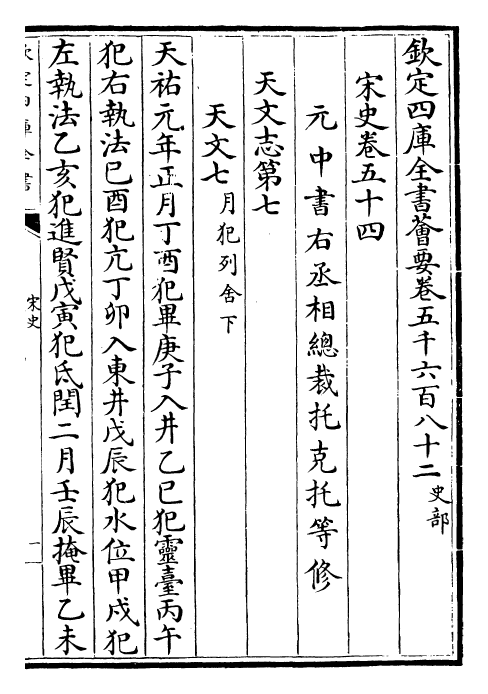 欽定四庫全書薈要卷五千六百八十二 史部
宋史卷五十四
元中書右丞相總裁托克托等修
天文志第七
天文七 月犯列舍下
天祐元年正月丁酉犯畢庚子入井乙巳犯靈臺丙午
犯右執法巳酉犯亢丁卯入東井戊辰犯水位甲戌犯
左執法乙亥犯進賢戊寅犯氐閏二月壬辰掩畢乙未
欽定四庫全書
宋史
一